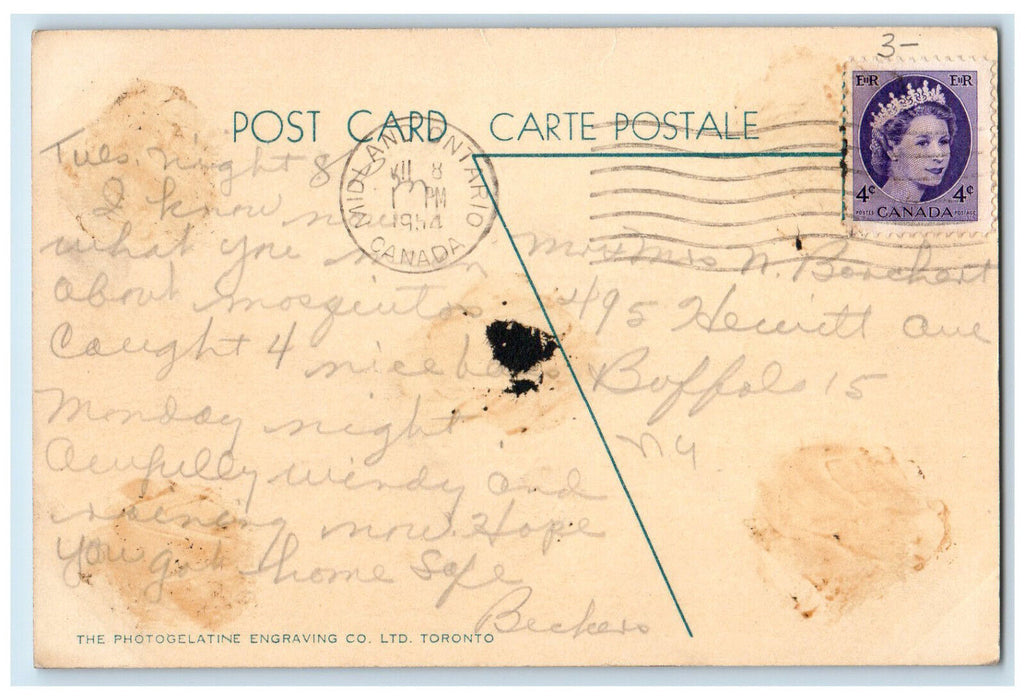 3-
EIIR EIIR
4¢ 4¢
POSTES CANADA POSTAGE
POST CARD CARTE POSTALE
MIDLAND ONTARIO
VII 8
PM
1954
CANADA
Tues. night 8
I know now
what you mean
about mosquitos
Caught 4 nice bass
Monday night
Awfully windy and
raining now. Hope
you got home safe
Beckers
Mr & Mrs N. Borchert
495 Hewitt ave
Buffalo 15
NY
THE PHOTOGELATINE ENGRAVING CO. LTD. TORONTO